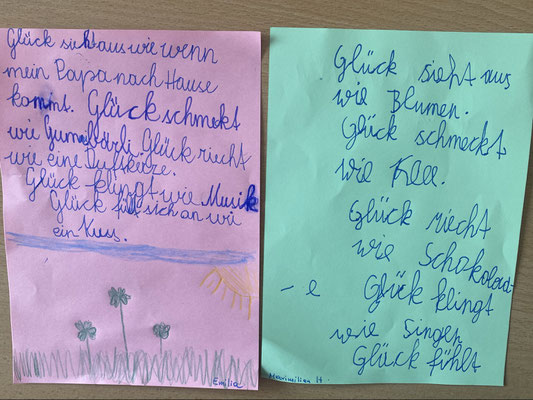 Glück sieht aus wie wenn
mein Papa nach Hause
kommt. Glück schmekt
wie Gumebärli Glück riecht
wie eine Duftkerze.
Glück klingt wie Musik
Glück fült sich an wie
ein Kuss.
Emilia
Glück sieht aus
wie Blumen.
Glück schmeckt
wie Klee.
Glück riecht
wie Schokolad-
- e Glück klingt
wie Singen
Glück fühlt
Maximilian H